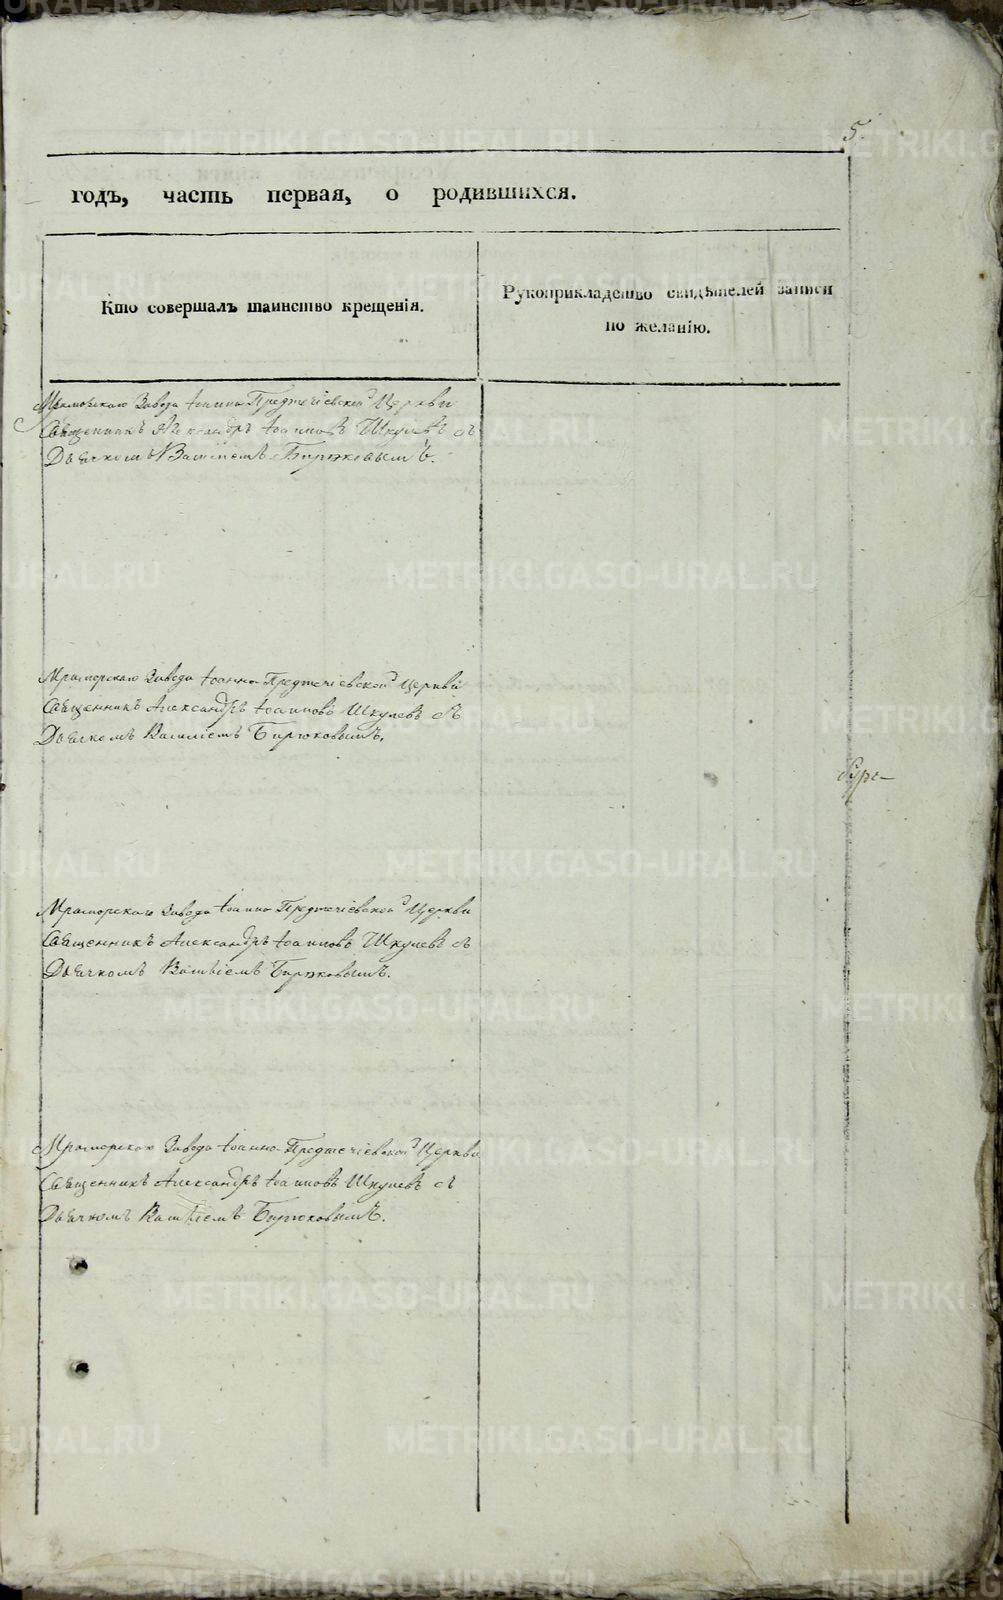 5.
годъ, часть первая, о родившихся.
Кто совершалъ таинство крещенія.
Рукоприкладство свидѣтелей записи
по желанію.
Мраморскаго Завода Іоанно Предтечіевской Церкви
Священникъ Александръ Іоанновъ Шкулевъ съ
Дьячкомъ Василіемъ Бирюковымъ.
Мраморскаго Завода Іоанно-Предтечіевской Церкви
Священникъ Александръ Іоанновъ Шкулевъ съ
Дьячкомъ Василіемъ Бирюковымъ.
Мраморскаго Завода Іоанно Предтечіевской Церкви
Священникъ Александръ Іоанновъ Шкулевъ съ
Дьячкомъ Василіемъ Бирюковымъ.
Мраморскаго Завода Іоанно-Предтечіевской Церкви
Священникъ Александръ Іоанновъ Шкулевъ съ
Дьячкомъ Василіемъ Бирюковымъ.
METRIKI.GASO-URAL.RU